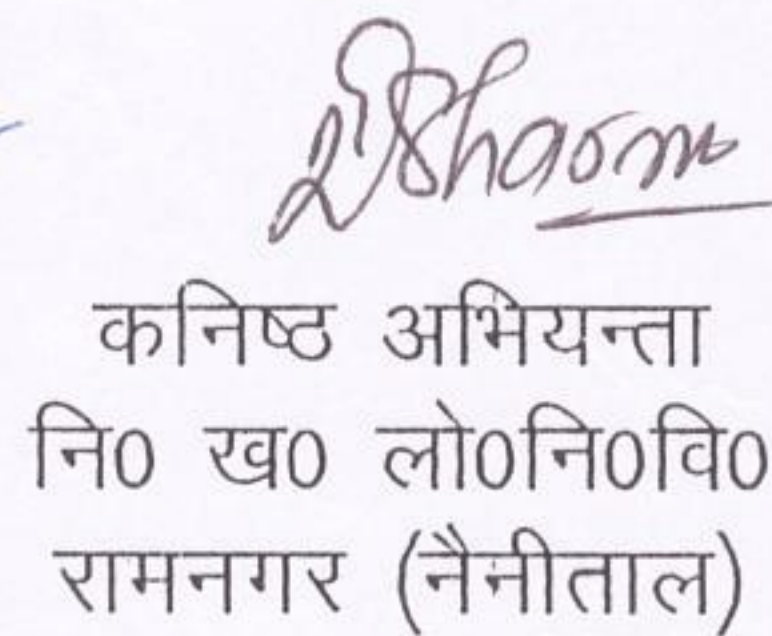 Sharma
कनिष्ठ अभियन्ता
नि0 ख0 लो0नि0वि0
रामनगर (नैनीताल)